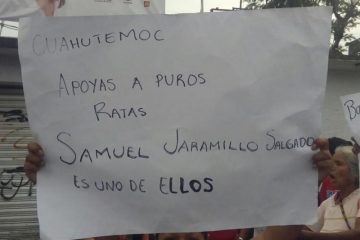 CUAHUTEMOC
APOYAS A PUROS
RATAS
SAMUEL JARAMILLO SALGADO
ES UNO DE ELLOS
BO